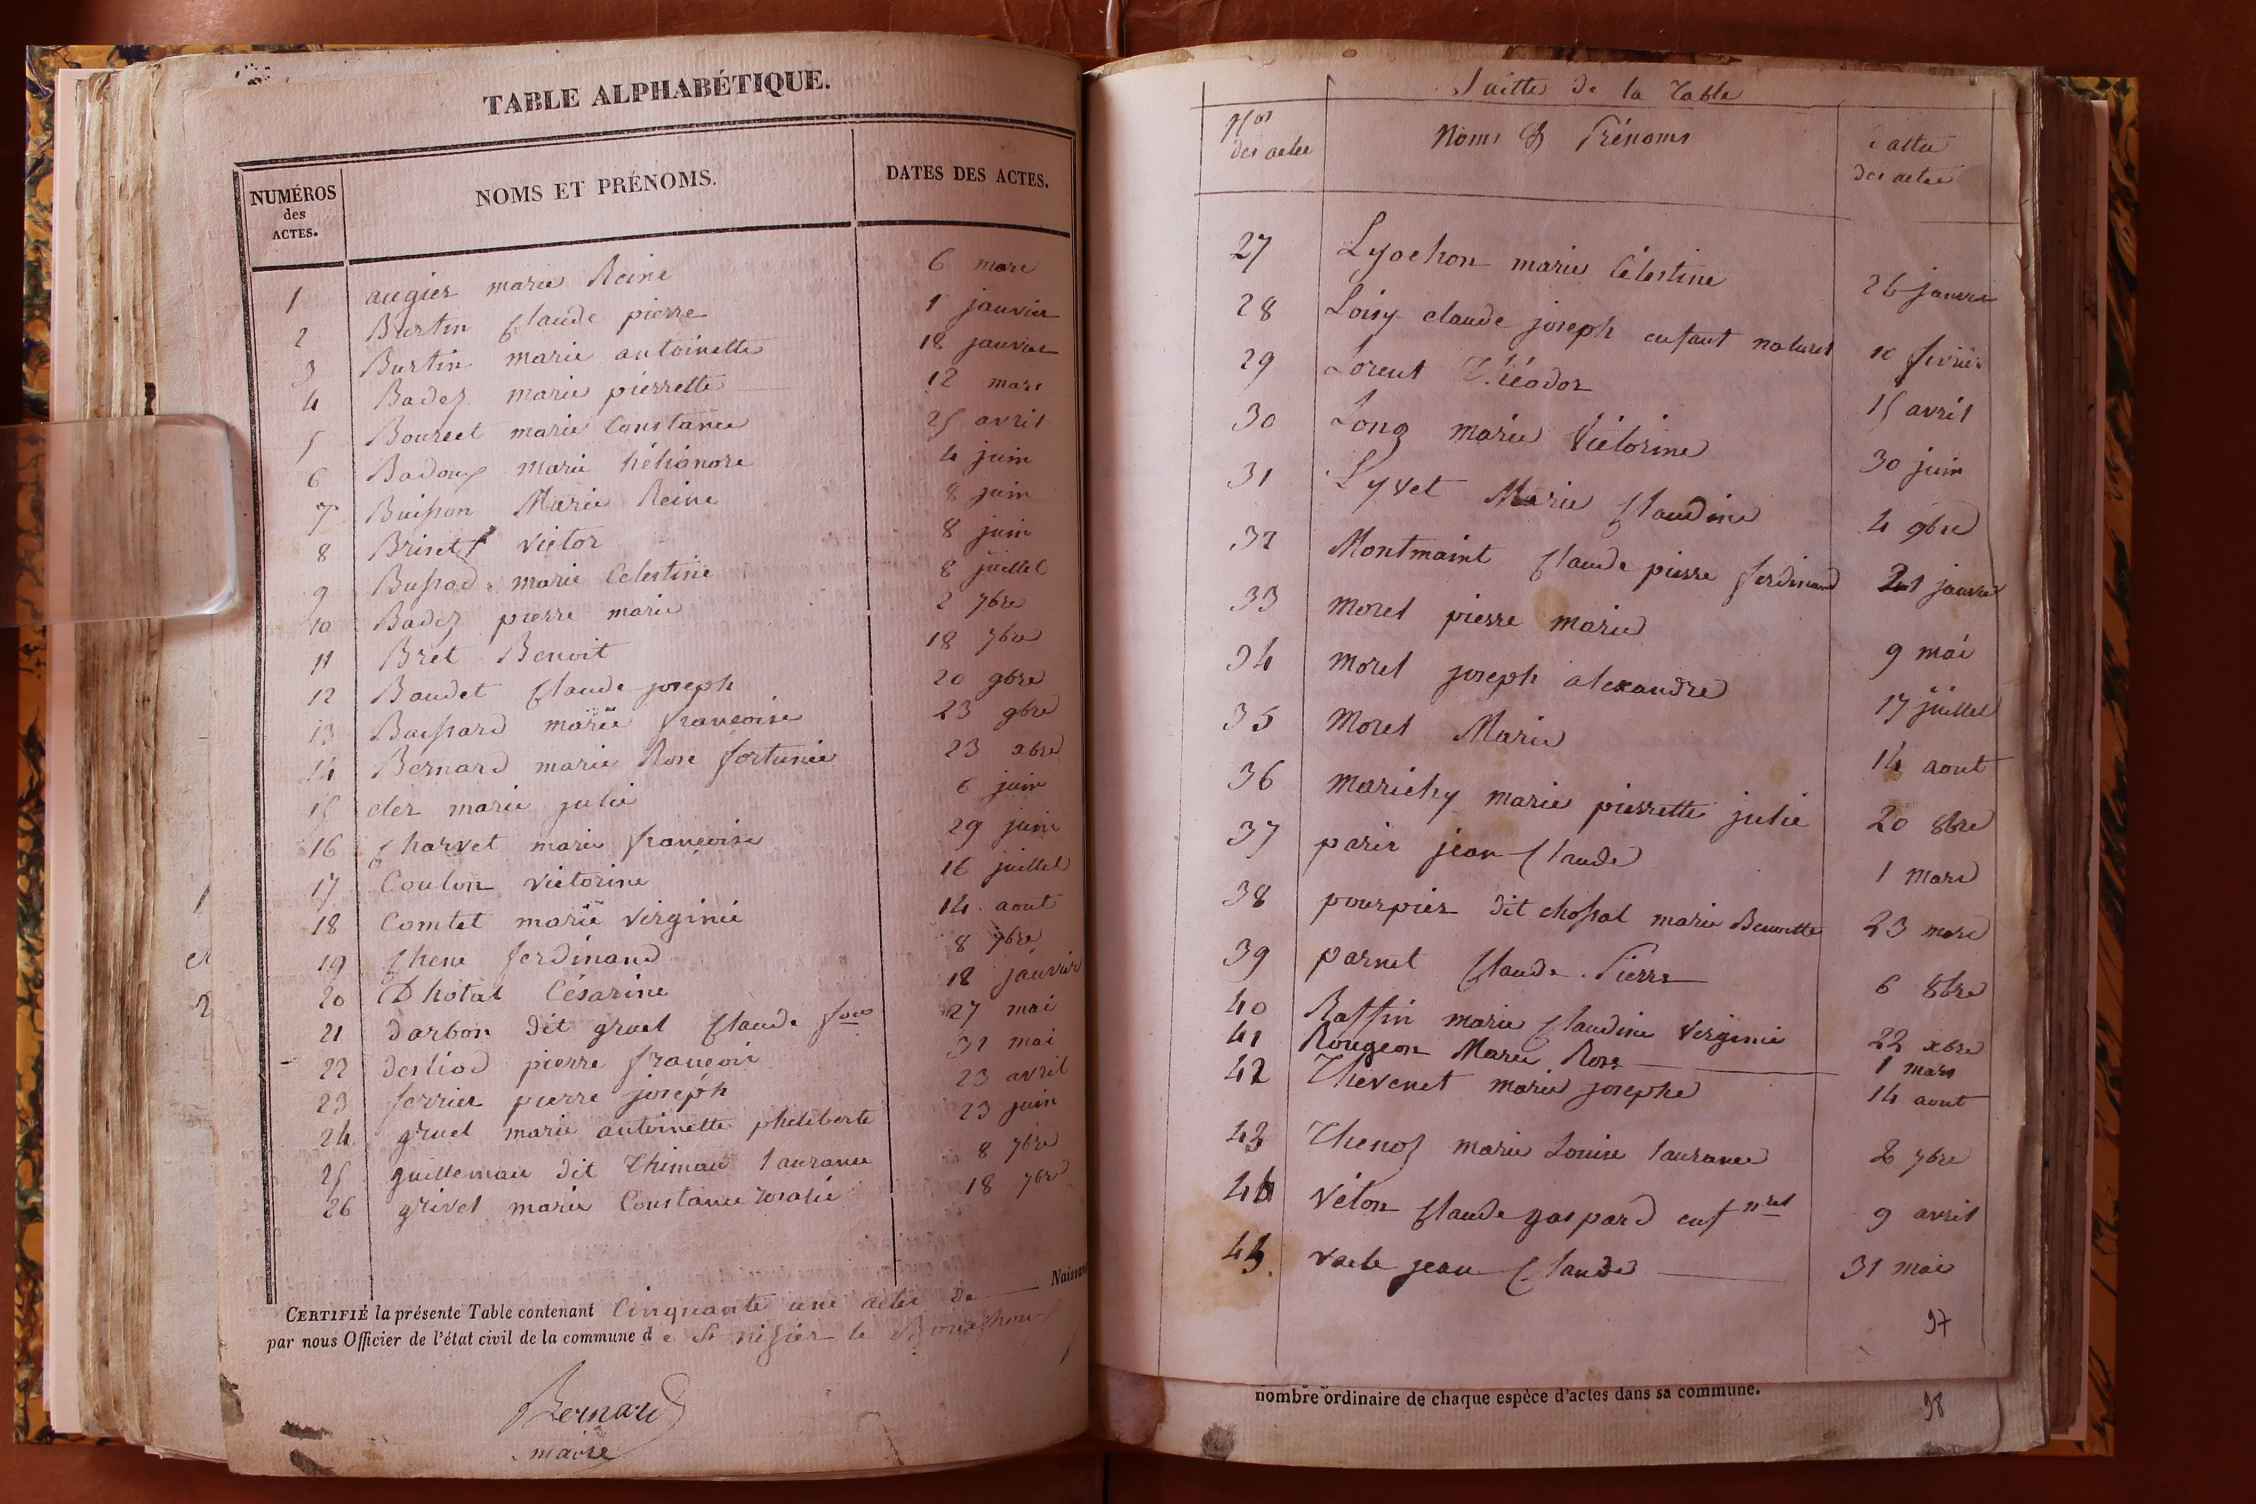 TABLE ALPHABÉTIQUE.
NUMÉROS des ACTES. NOMS ET PRÉNOMS. DATES DES ACTES.
1 augier marie Reine 6 mars
2 Burtin Claude pierre 1 janvier
3 Burtin marie antoinette 18 janvier
4 Badez marie pierrette 12 mars
5 Bourcet marie Constance 25 avril
6 Badoux Marie héliónore 4 juin
7 Buisson Marie Reine 8 juin
8 Brinet victor 8 juin
9 Bussod marie Celestine 8 juillet
10 Badez pierre marie 2 7bre
11 Bret Benoit 18 7bre
12 Baudet Claude joseph 20 9bre
13 Bassard marie françoise 23 9bre
14 Bernard marie Rose fortunée 23 xbre
15 cler marie julie 6 juin
16 Charvet marie françoise 29 juin
17 Coulon victorine 16 juillet
18 Comtet marie virginie 14 aout
19 Chene ferdinand 8 7bre
20 Dhotal Césarine 18 janvier
21 darbon dit gruel Claude fcois 27 mai
22 desliod pierre françois 31 mai
23 ferrier pierre joseph 23 avril
24 gruel marie antoinette pheliberte 23 juin
25 guillemau dit Thimau laurance 8 7bre
26 grivel marie Constance rosalie 18 7bre
CERTIFIÉ la présente Table contenant Cinquante une actes de
par nous Officier de l'état civil de la commune de St nizier le Bouchoux
Bernard
maire
Suitte de la Table
Nos des actes Noms & Prénoms dattes des actes
27 Lyochon marie Célestine 26 janvier
28 Loisy claude joseph enfant naturel 10 fevrier
29 Lorent Théodor 15 avril
30 Long marie Victorine 30 juin
31 Lyvet Marie Claudine 4 9bre
32 Montmaint Claude pierre ferdinand 21 janvier
33 morel pierre marie 9 mai
34 morel joseph alexandre 17 juillet
35 morel Marie 14 aout
36 marichy marie pierrette julie 20 8bre
37 paris jean Claude 1 mars
38 pourpier dit chossat marie Benoitte 23 mars
39 parnet Claude Pierre 6 8bre
40 Raffin marie Claudine virginie 22 xbre
41 Rougeon Marie Rose 1 mars
42 Thevenet marie josephe 14 aout
43 Thenoz marie Louise laurance 8 7bre
44 véton Claude gaspard enf nrel 9 avril
45 vaile jean Claude 31 mai
97
nombre ordinaire de chaque espèce d'actes dans sa commune.
98